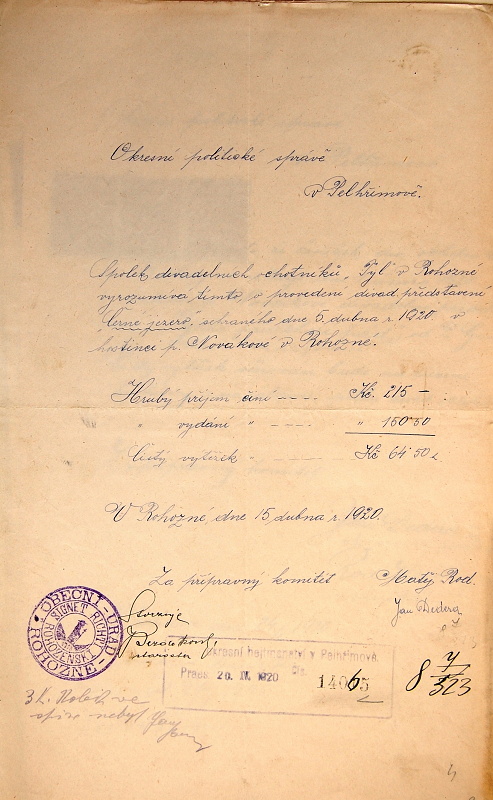 Okresní politické správě
v Pelhřimově.
Spolek divadelních ochotníků "Tyl" v Rohozné
vyrozumívá tímto o provedení divad. představení
"Černé jezero" sehraného dne 5. dubna r. 1920 v
hostinci p. Novákové v Rohozne.
Hrubý příjem činí ---- Kč. 215 -
" vydání " ---- " 150 50
Čistý výtěžek " ---- Kč 64 50
V Rohozné, dne 15 dubna r. 1920.
Za přípravný komitét
Matý Rod.
Jan Dedera
Stvrzuje
starosta
OBECNÍ ÚŘAD
ROHOZNÉ
SIGNET RICHT
ROHOZENSKI
Okresní hejtmanství v Pelhřimově.
Praes. 20. IV. 1920 čís. 14065
8 4/323